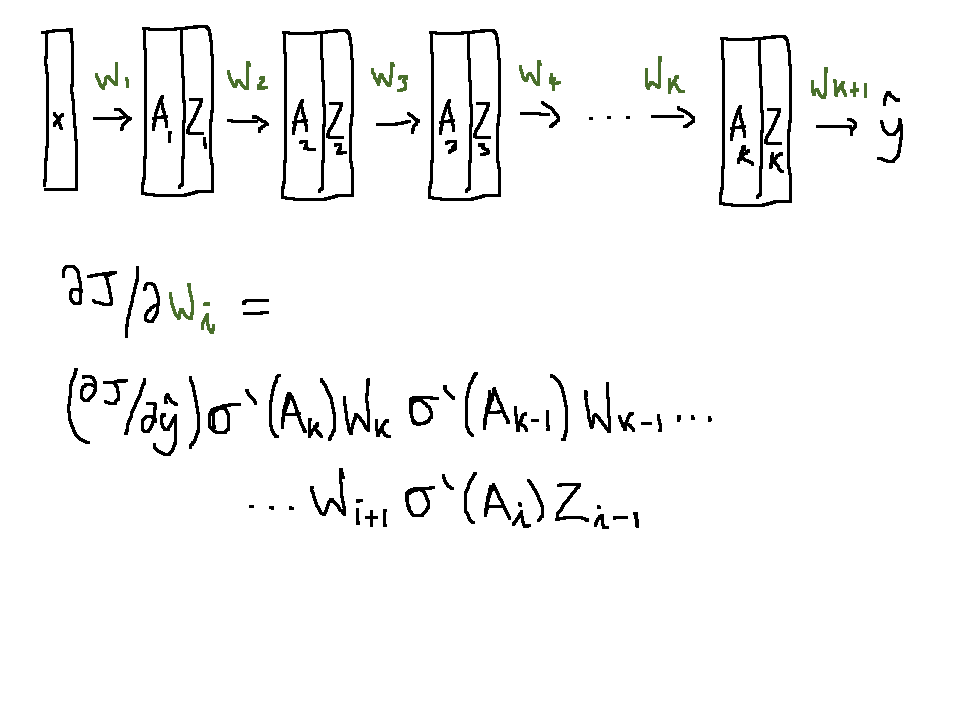 x W₁ → A₁ Z₁ W₂ → A₂ Z₂ W₃ → A₃ Z₃ W₄ → ... Wₖ → Aₖ Zₖ Wₖ₊₁ → ŷ
∂J/∂Wᵢ =
(∂J/∂ŷ)σ`(Aₖ)Wₖ σ`(Aₖ₋₁)Wₖ₋₁...
...Wᵢ₊₁ σ`(Aᵢ)Zᵢ₋₁